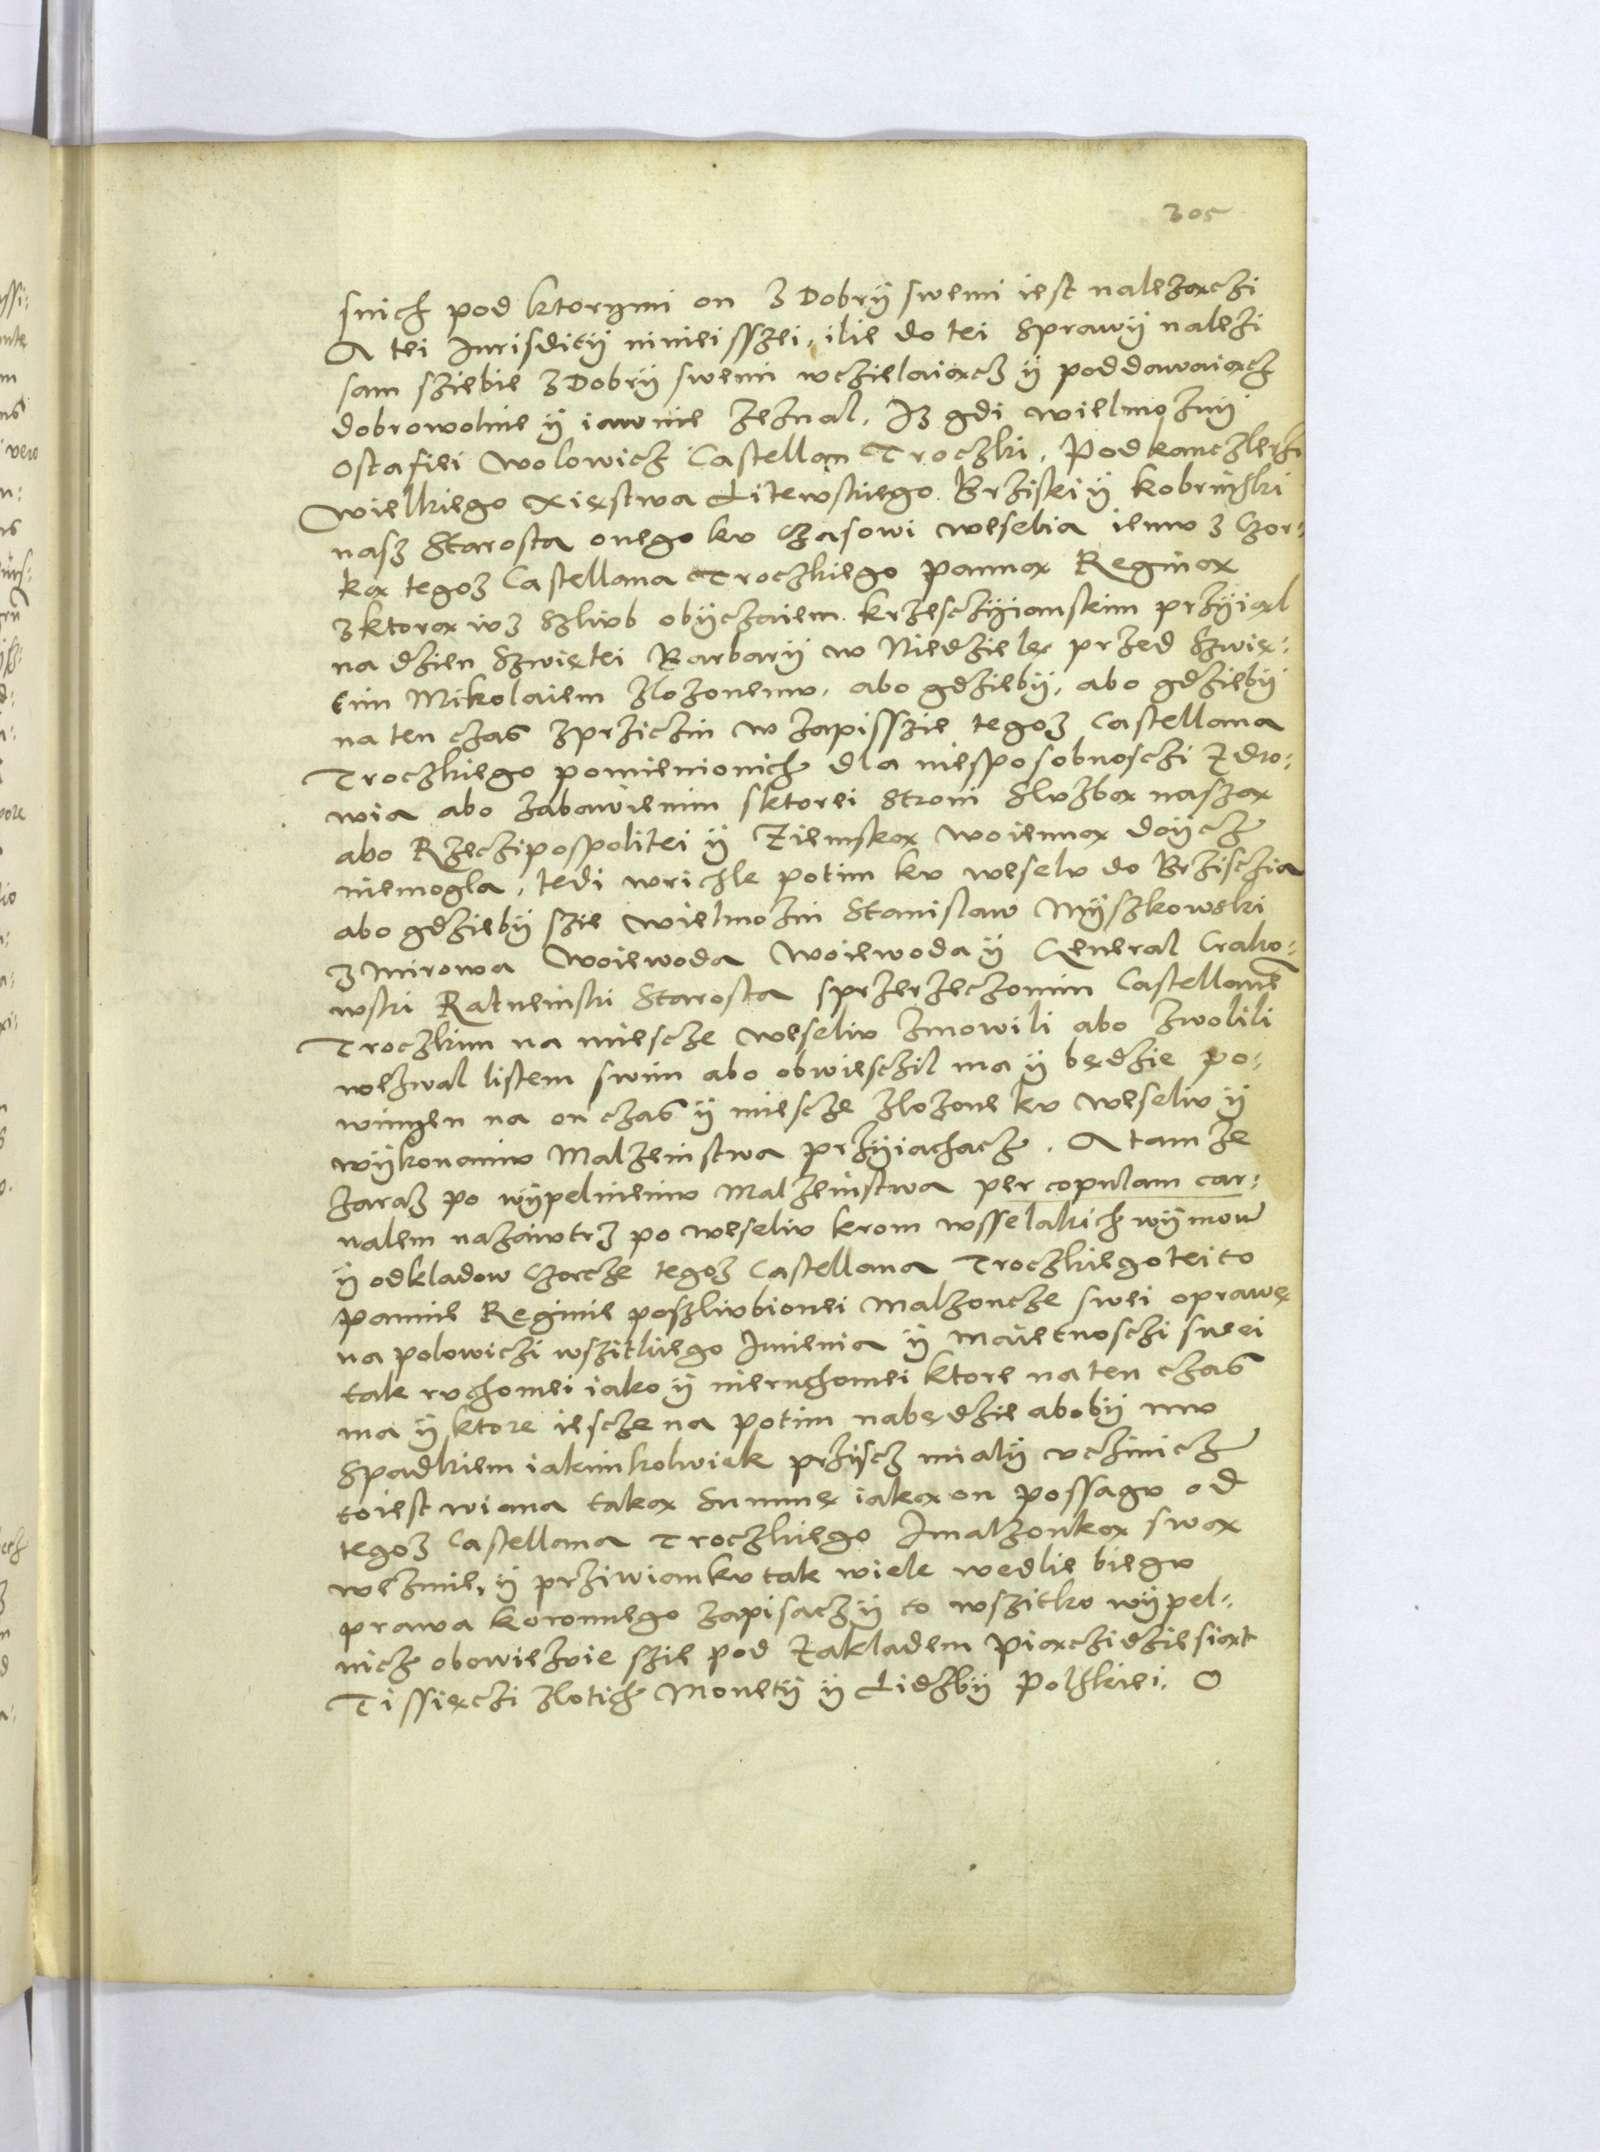 305
snich pod ktorymi on z Dobrÿ swemi iest należączi
A tei Jurisditÿ ninieisszei, ilie do tei Sprawÿ należi
sam sziebie z Dobrÿ swemi wczielaiącz ÿ poddawaiącz
dobrowolnie ÿ iawnie zeznal. Iz gdi wielmoznÿ
Ostafiei Wolowicz Castellan Troczki, Podkanczlerzi
Wielkiego Xięstwa Litewskiego Brziski ÿ Kobrinski
nasz Starosta onego ku Czasowi weselia iemu z Czor-
ką tegoz Castellana Troczkiego panną Reginą
z ktorą iuz Szlub obÿczaiem krzesczÿianskim przÿiąl
na dzien Szwiętei Barbarÿ w Niedzielę przed Szwię-
tim Mikolaiem zlozonemu, abo gdziebÿ, abo gdziebÿ
na ten czas zprziczin w zapisszie tegoz Castellana
Troczkiego pomienionich dla niesposobnosczi Zdro-
wia abo zabawienim sktorei Stroni Sluzbą naszą
abo Rzeczipospolitei ÿ Ziemską woienną doÿcz
niemogla, tedi wrichle potim ku weselu do Brzisczia
abo gdziebÿ szie wielmozni Stanislaw Mÿszkowski
z Mirowa Woiewoda Woiewoda ÿ General Crako-
wski Ratneinski Starosta sprzerzeczonim Castellane
Troczkim na miescze weseliu zmowili abo zwolili
wezwal listem swim abo obwiesczil ma ÿ będzie po-
winien na on czas ÿ miescze zlozone ku weseliu ÿ
wÿkonaniu Malzeinstwa przÿiachacz. A tam ze
zaraz po wÿpelnieniu Malzeinstwa per copulam car-
nalem nazaiutrz po weseliu krom wsselakich wÿmow
ÿ odkladow Czorcze tegoz Castellana Troczkiego tei to
pannie Reginie poszliubionei Malzoncze swei oprawę
na polowiczi wszitkiego Imienia ÿ Maietnosczi swei
tak ruchomei iako ÿ nieruchomei ktore na ten czas
ma ÿ ktore iescze na potim nabędzie abobÿ mu
Spadkiem iakimkolwiek przÿscz mialÿ uczinicz
to iest wiana taką Summę iaką on possagu od
tegoz Castellana Troczkiego Imalzonką swą
wezmie, ÿ prziwianku tak wiele wedlie biegu
prawa koronnego zapisacz ÿ to wszitko wÿpel-
nicz obowiezuie szie pod Zakladem piączidziesiąt
Tissięczi zlotich Monetÿ ÿ Lidzbÿ Polskiei. O